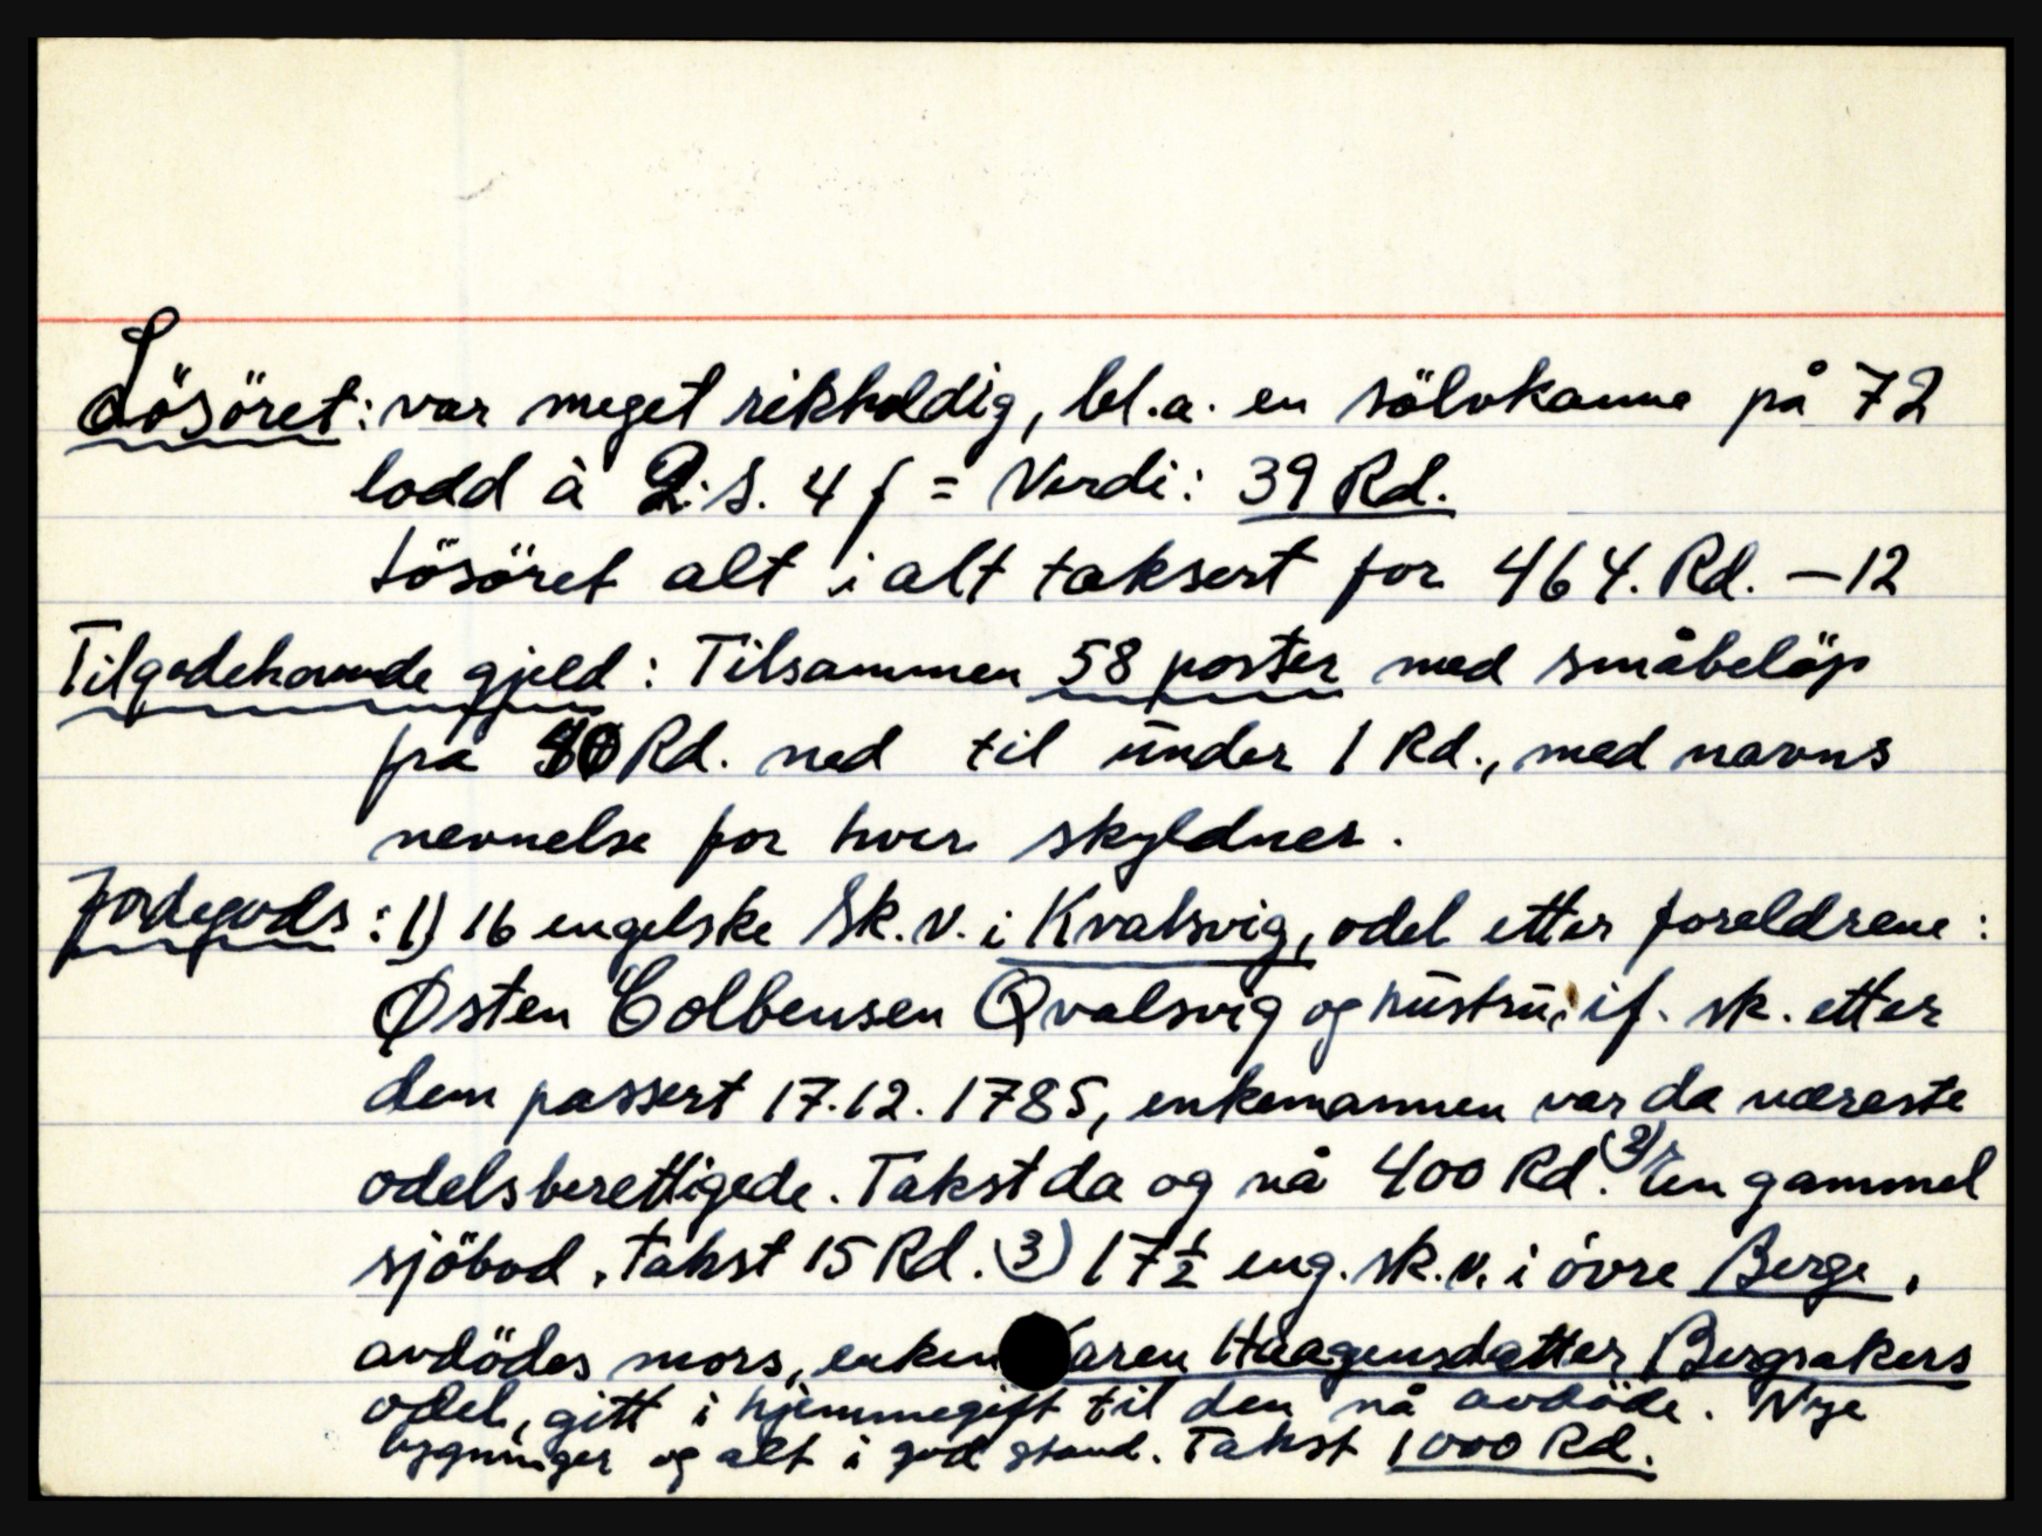 Lösöret: var meget rikholdig, bl.a. en sölvkanne på 72
lodd à 2.S. 4 f = Verdi: 39 Rd.
Lösöret alt i alt taksert for 464. Rd. – 12
Tilgodehavende gjeld: Tilsammen 58 poster med småbelöp
fra Rd. ned til under 1 Rd., med navns
nevnelse for hver skyldner.
Jordegods: 1) 16 engelske Sk. v. i Kvalsvig, odel etter foreldrene:
Østen Colbensen Qvalsvig og hustru, if. sk. etter
dem passert 17.12.1785, enkemannen var da næreste
odelsberettigede. Takst da og nå 400 Rd. (2) En gammel
sjöbod. Takst 15 Rd. (3) 17½ eng. sk. v. i övre Berge,
avdödes mors, enken aren Haagensdatter Bergsakers
odel, gitt i hjemmegift til den nå avdöde. Nye
bygninger og alt i god stand. Takst 1000 Rd.